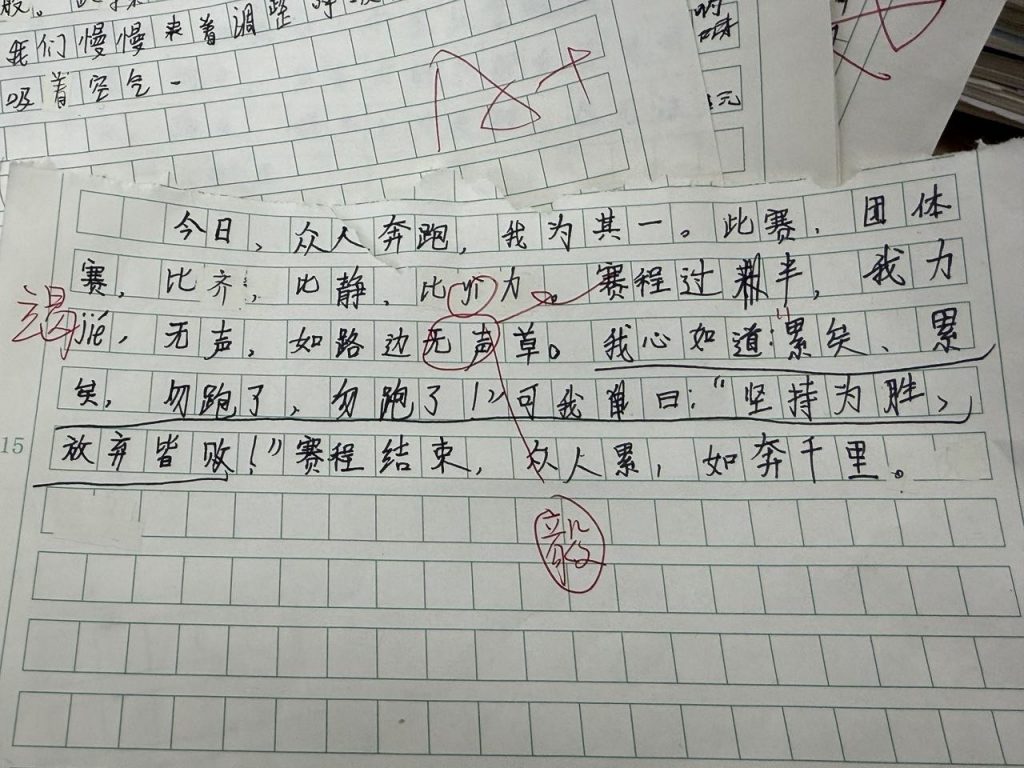 我们慢慢来着调整
吸着空气
元
今日，众人奔跑，我为其一。此赛，团体
赛，比齐，比静，比力。赛程过半，我力
竭
jié，无声，如路边无声草。我心如道："累矣、累
矣，勿跑了，勿跑了！"可我单曰："坚持为胜，
放弃皆败！"赛程结束，众人累，如奔千里。
15